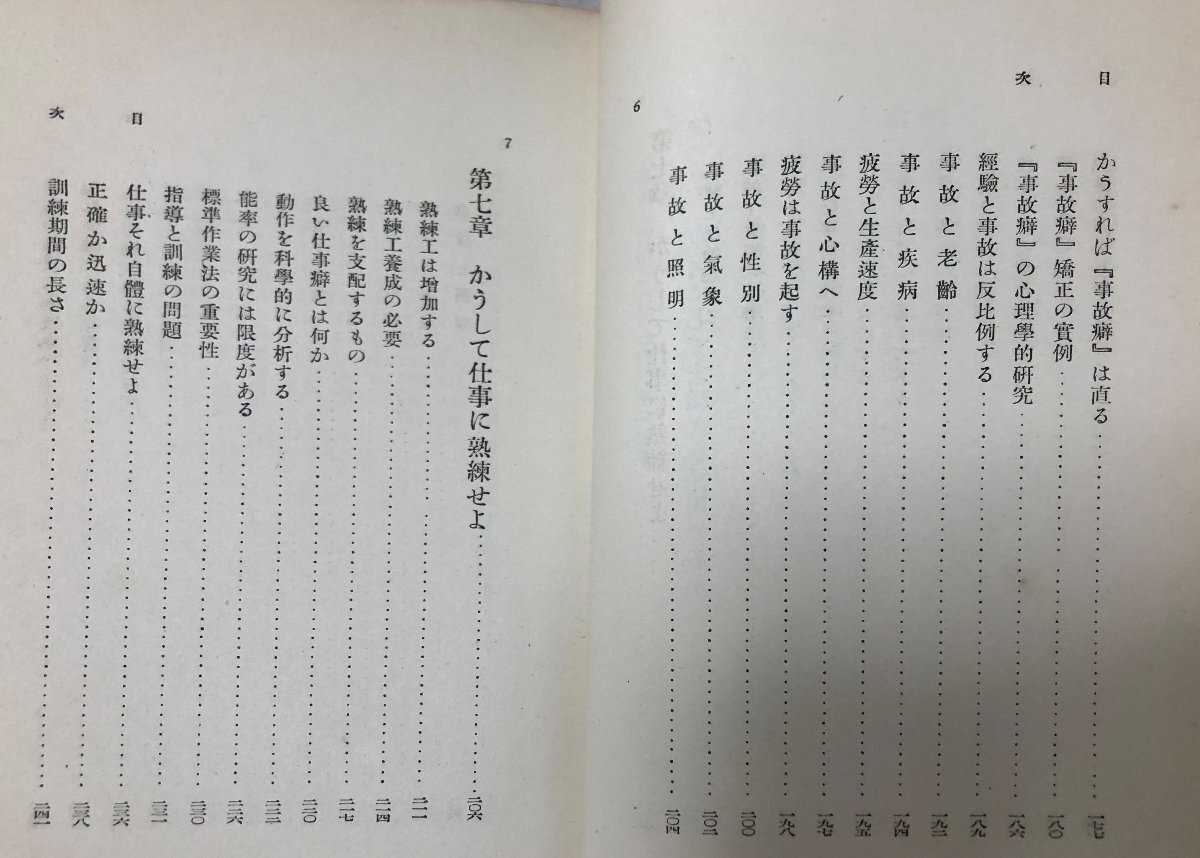 目次
かうすれば『事故癖』は直る……一七七
『事故癖』矯正の實例……一八〇
『事故癖』の心理學的研究……一八六
經驗と事故は反比例する……一八九
事故と老齡……一九二
事故と疾病……一九四
疲勞と生產速度……一九五
事故と心構へ……一九七
疲勞は事故を起す……一九八
事故と性別……二〇〇
事故と氣象……二〇二
事故と照明……二〇四
6
7
第七章 かうして仕事に熟練せよ……二〇六
熟練工は增加する……二一一
熟練工養成の必要……二一四
熟練を支配するもの……二一七
良い仕事癖とは何か……二二〇
動作を科學的に分析する……
能率の研究には限度がある……二二六
標準作業法の重要性……二三〇
指導と訓練の問題……二三一
仕事それ自體に熟練せよ……二三六
正確か迅速か……二三八
訓練期間の長さ……二四一
目次